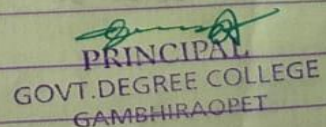 PRINCIPAL
GOVT.DEGREE COLLEGE
GAMBHIRAOPET